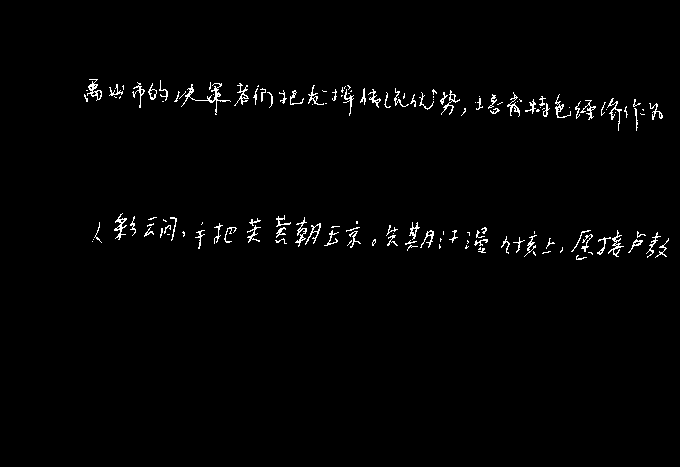 禹州市的决策者们把发挥传统优势,培育特色经济作为
人彩云间,手把芙蓉朝玉京。先期汗漫九垓上,愿接卢敖